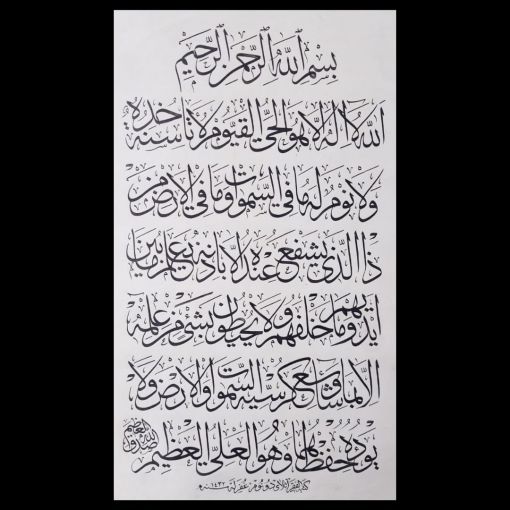 بسم الله الرحمن الرحيم
الله لا اله الا هو الحي القيوم لا تأخذه سنة
ولا نوم له ما في السموات وما في الارض من
ذا الذي يشفع عنده الا باذنه يعلم ما بين
ايديهم وما خلفهم ولا يحيطون بشئ من علمه
الا بما شاء وسع كرسيه السموات والارض ولا
يؤده حفظهما وهو العلي العظيم
صدق الله العظيم
كتبه الفقير غفر له سنه ١٤٣٢